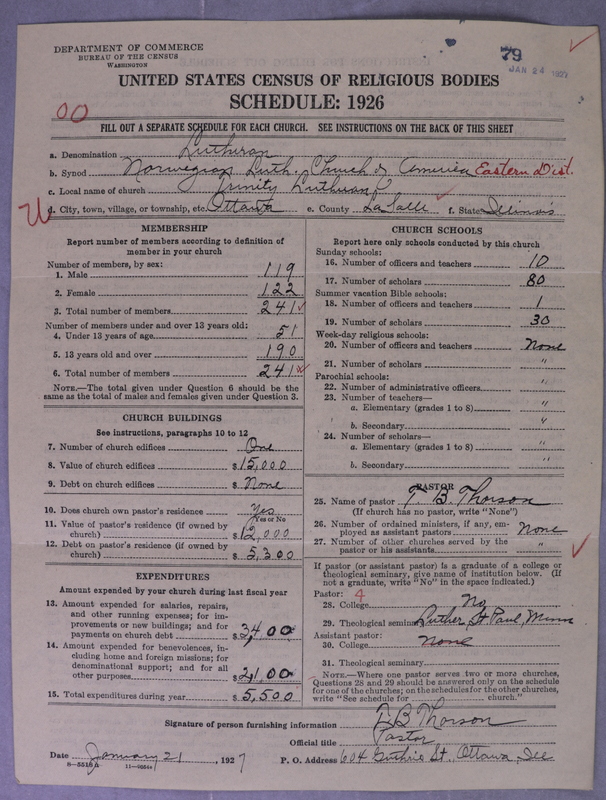 79
JAN 24 1927
DEPARTMENT OF COMMERCE
BUREAU OF THE CENSUS
WASHINGTON
UNITED STATES CENSUS OF RELIGIOUS BODIES
SCHEDULE: 1926
00
FILL OUT A SEPARATE SCHEDULE FOR EACH CHURCH. SEE INSTRUCTIONS ON THE BACK OF THIS SHEET
a. Denomination Lutheran
b. Synod Norwegian Luth. Church of America Eastern Dist.
c. Local name of church Trinity Lutheran
U d. City, town, village, or township, etc. Ottawa e. County LaSalle f. State Illinois
MEMBERSHIP
Report number of members according to definition of
member in your church
Number of members, by sex:
1. Male 119
2. Female 122
3. Total number of members 241
Number of members under and over 13 years old:
4. Under 13 years of age 51
5. 13 years old and over 190
6. Total number of members 241
NOTE.—The total given under Question 6 should be the
same as the total of males and females given under Question 3.
CHURCH BUILDINGS
See instructions, paragraphs 10 to 12
7. Number of church edifices One
8. Value of church edifices $15,000
9. Debt on church edifices $None
10. Does church own pastor's residence Yes
Yes or No
11. Value of pastor's residence (if owned by
church) $12,000
12. Debt on pastor's residence (if owned by
church) $5,300
EXPENDITURES
Amount expended by your church during last fiscal year
13. Amount expended for salaries, repairs,
and other running expenses; for im-
provements or new buildings; and for
payments on church debt $3,400
14. Amount expended for benevolences, in-
cluding home and foreign missions; for
denominational support; and for all
other purposes $2,100
15. Total expenditures during year $5,500
CHURCH SCHOOLS
Report here only schools conducted by this church
Sunday schools:
16. Number of officers and teachers 10
17. Number of scholars 80
Summer vacation Bible schools:
18. Number of officers and teachers 1
19. Number of scholars 30
Week-day religious schools:
20. Number of officers and teachers None
21. Number of scholars "
Parochial schools:
22. Number of administrative officers "
23. Number of teachers—
a. Elementary (grades 1 to 8) "
b. Secondary "
24. Number of scholars—
a. Elementary (grades 1 to 8) "
b. Secondary "
PASTOR
25. Name of pastor T. B. Thorson
(If church has no pastor, write "None")
26. Number of ordained ministers, if any, em-
ployed as assistant pastors None
27. Number of other churches served by the
pastor or his assistants "
If pastor (or assistant pastor) is a graduate of a college or
theological seminary, give name of institution below. (If
not a graduate, write "No" in the space indicated.)
Pastor: 4
28. College No
29. Theological seminary Luther, St Paul, Minn
Assistant pastor:
30. College None
31. Theological seminary
NOTE.—Where one pastor serves two or more churches,
Questions 28 and 29 should be answered only on the schedule
for one of the churches; on the schedules for the other churches,
write "See schedule for church."
Signature of person furnishing information T B Thorson
Official title Pastor
Date January 21, 1927 P. O. Address 604 Guthrie St., Ottawa, Ill
8-5518a 11-9864